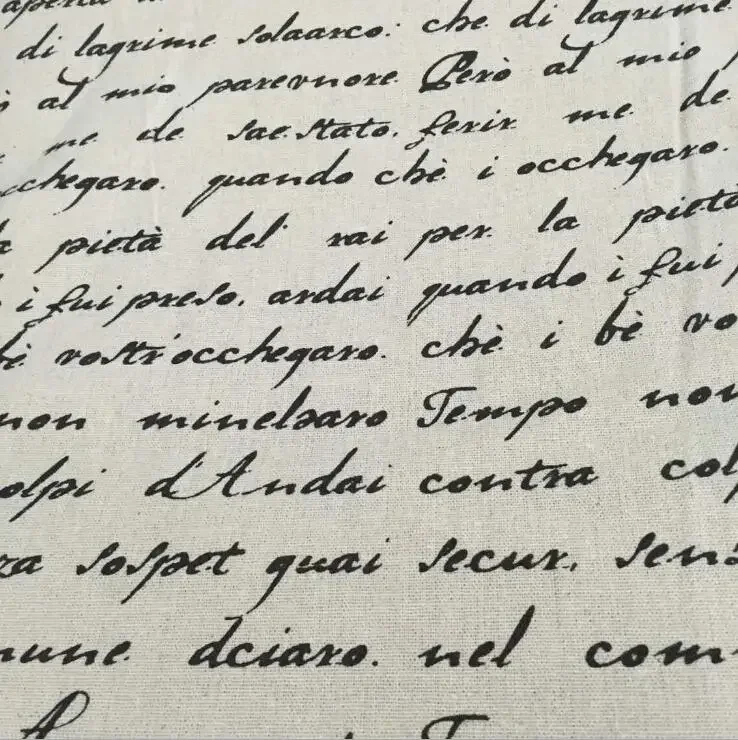 di lagrime solaarco: che di lagrime
al mio parevnore. Però al mio
me de sae stato. ferir me de
cchegaro. quando chè i occhegaro.
pietà del' rai per la pietà
i fui preso. ardai quando i fui
vostr'occhegaro. chè i bè vo
non minelsaro Tempo non
olpi d'Andai contra colp
za sospet guai secur. senz
mune dciaro. nel com